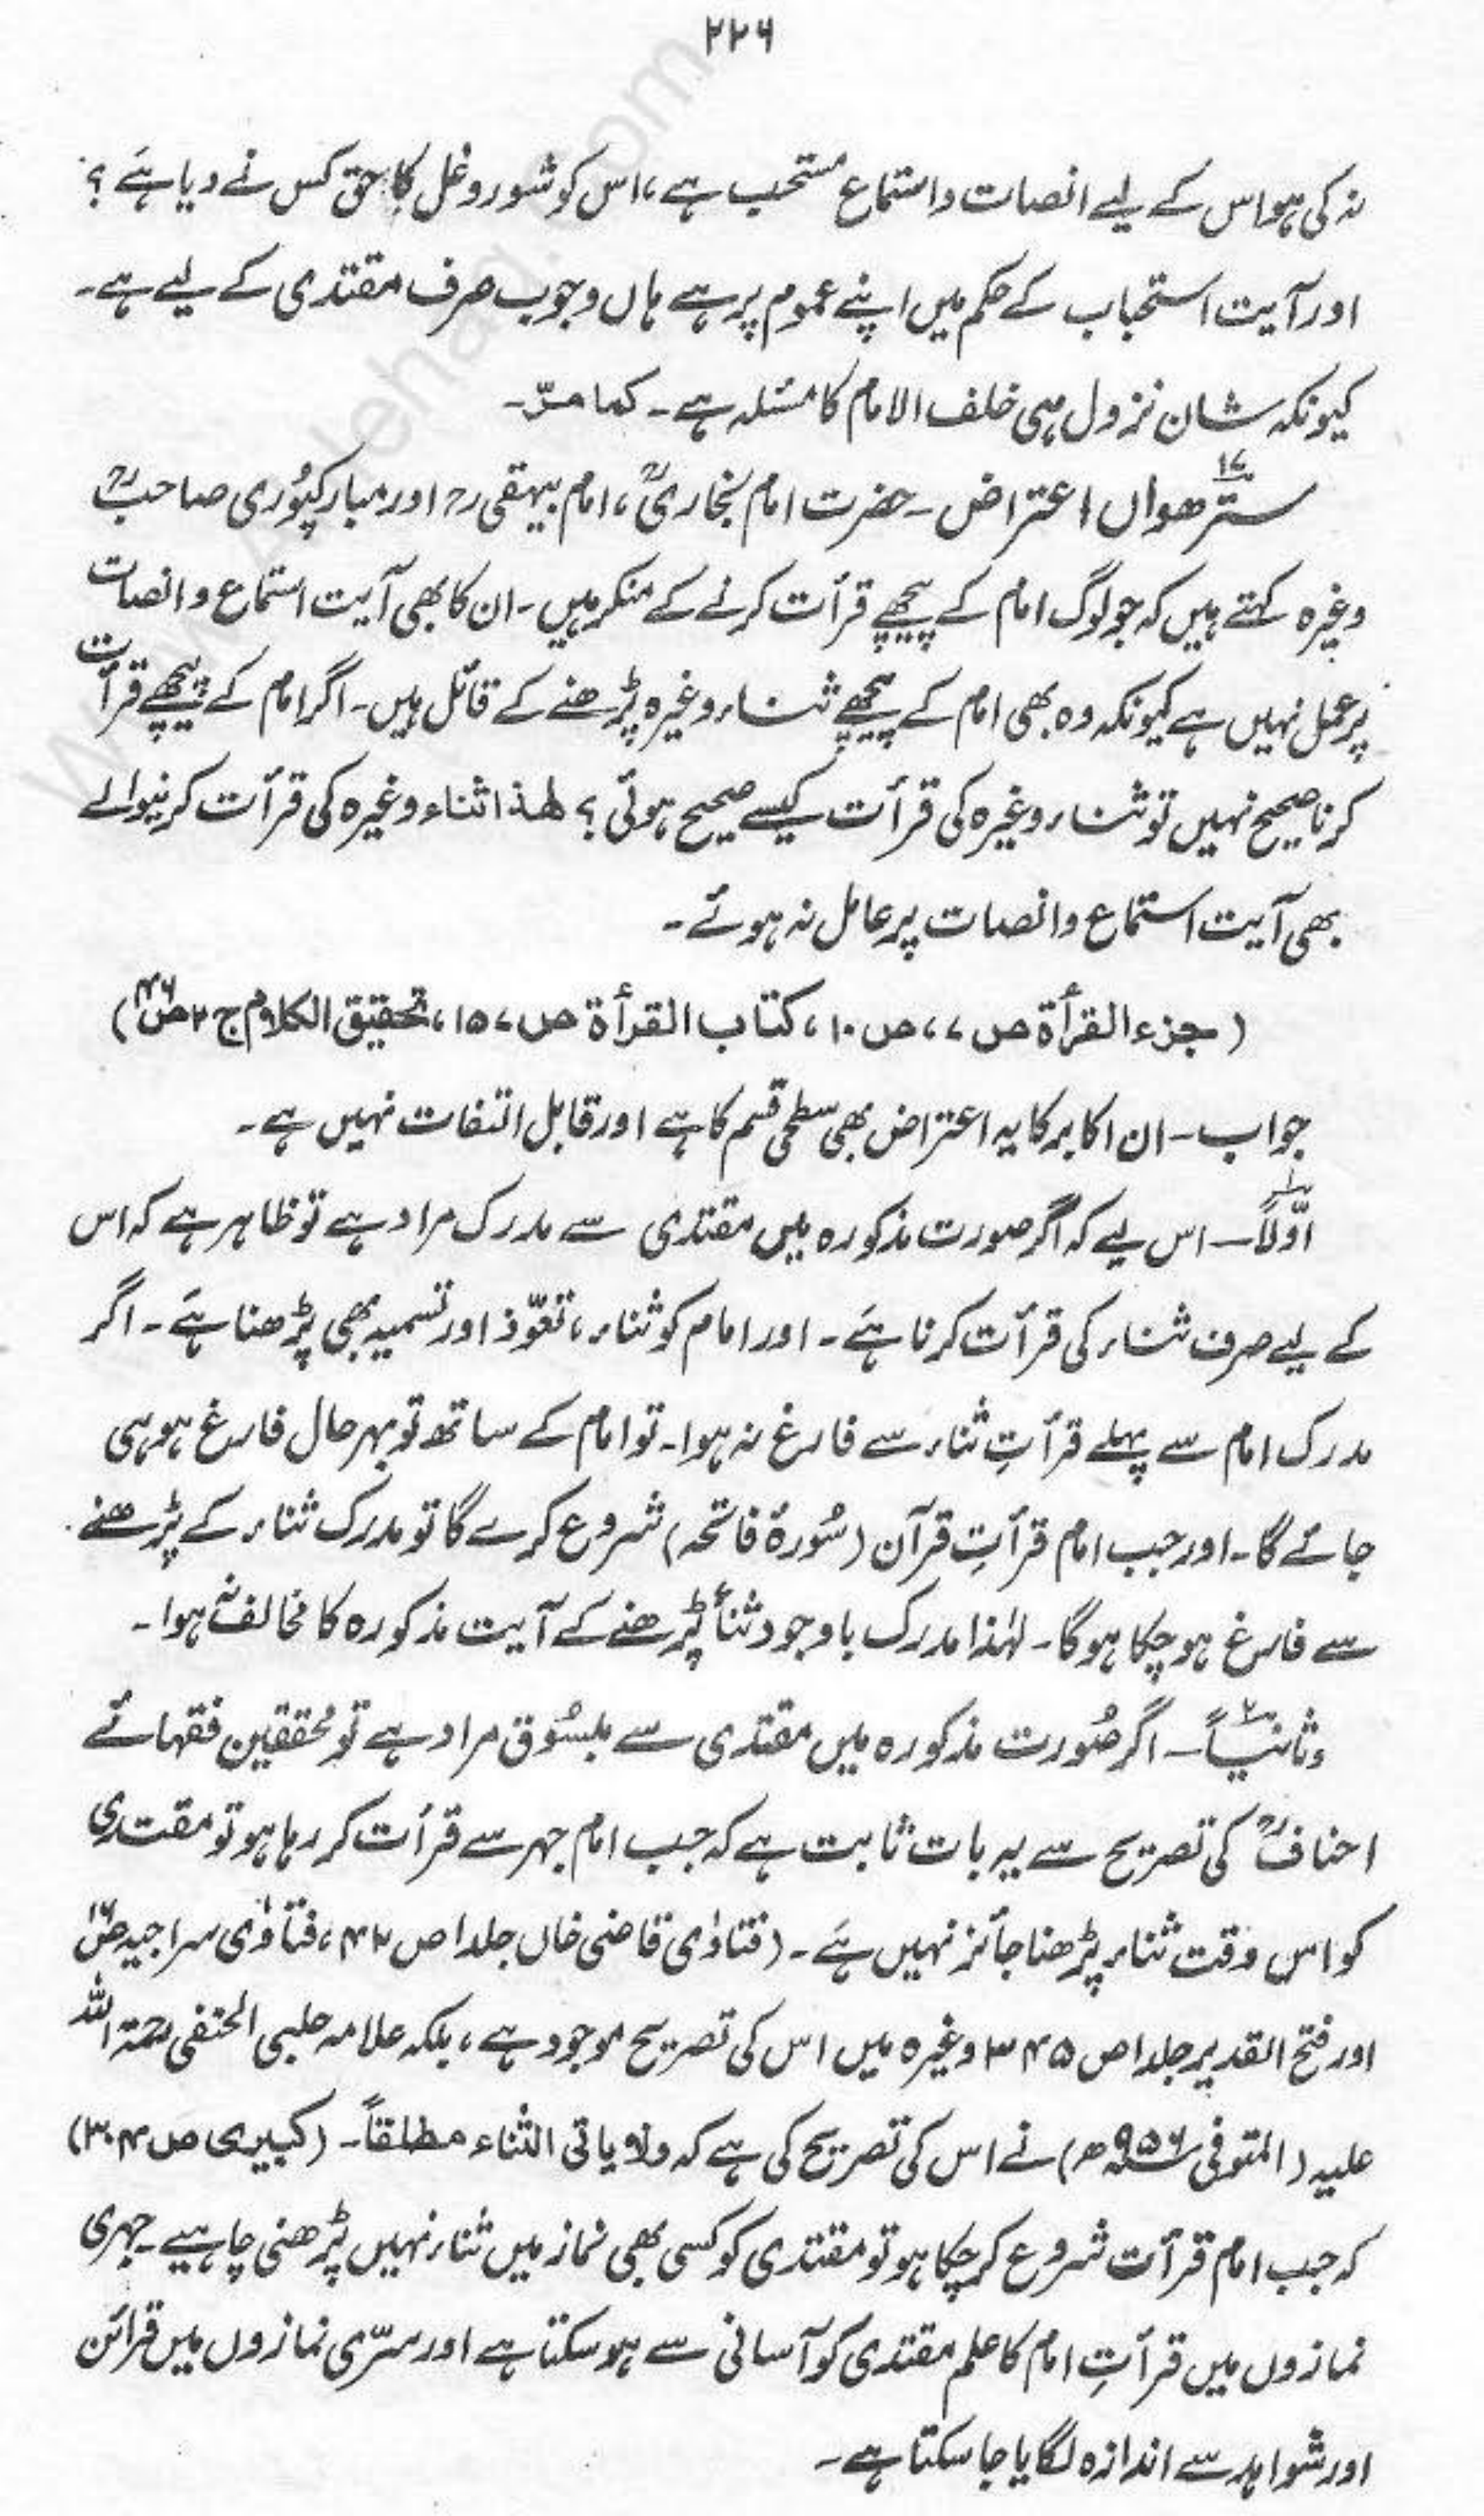 ۲۲۶
نہ کی ہو اس کے لیے انصات و استماع مستحب ہے، اس کو شور و غل کا حق کس نے دیا ہے ؟
اور آیت استحباب کے حکم میں اپنے عموم پر ہے ہاں وجوب صرف مقتدی کے لیے ہے۔
کیونکہ شان نزول ہی خلف الامام کا مسئلہ ہے۔ کما مرّ۔
ستّرھواں ۱۷ اعتراض۔ حضرت امام بُخاریؒ، امام بیہقی رح اور مبارکپُوری صاحبؒ
وغیرہ کہتے ہیں کہ جو لوگ امام کے پیچھے قرأت کرنے کے منکر ہیں۔ ان کا بھی آیت استماع و انصات
پر عمل نہیں ہے کیونکہ وہ بھی امام کے پیچھے ثناء وغیرہ پڑھنے کے قائل ہیں۔ اگر امام کے پیچھے قرأت
کرنا صحیح نہیں تو ثناء وغیرہ کی قرأت کیسے صحیح ہوئی ؟ لھذا ثناء وغیرہ کی قرأت کرنیوالے
بھی آیت استماع و انصات پر عامل نہ ہوئے۔
(جزء القرأة ص ۷، ص ۱۰، کتاب القرأة ص ۱۵۷، تحقیق الکلام ج ۲ ص ۴۶)
جواب۔ ان اکابر کا یہ اعتراض بھی سطحی قسم کا ہے اور قابل التفات نہیں ہے۔
اوّلاً ۱۔ اس لیے کہ اگر صورت مذکورہ میں مقتدی سے مدرک مراد ہے تو ظاہر ہے کہ اس
کے لیے صرف ثناء کی قرأت کرنا ہے۔ اور امام کو ثناء، تعوّذ اور تسمیہ بھی پڑھنا ہے۔ اگر
مدرک امام سے پہلے قرأتِ ثناء سے فارغ نہ ہوا۔ تو امام کے ساتھ تو بہرحال فارغ ہو ہی
جائے گا۔ اور جب امام قرأتِ قرآن (سُورۂ فاتحہ) شروع کرے گا تو مدرک ثناء کے پڑھنے
سے فارغ ہو چکا ہوگا۔ لہٰذا مدرک باوجود ثنأ پڑھنے کے آیت مذکورہ کا مخالف نہ ہوا۔
وثانیاً ۲۔ اگر صُورت مذکورہ میں مقتدی سے مسبُوق مراد ہے تو محققین فقہائے
احنافؒ کی تصریح سے یہ بات ثابت ہے کہ جب امام جہر سے قرأت کر رہا ہو تو مقتدی
کو اس وقت ثناء پڑھنا جائز نہیں ہے۔ (فتاوٰی قاضی خاں جلد ۱ ص ۴۲، فتاوٰی سراجیہ
اور فتح القدیر جلد ۱ ص ۳۴۵ وغیرہ میں اس کی تصریح موجود ہے، بلکہ علامہ حلبی الحنفی رحمۃ اللہ
علیہ (المتوفی ۹۵۶ھ) نے اس کی تصریح کی ہے کہ ولا یاتی الثناء مطلقاً۔ (کبیری ص ۳۰۴)
کہ جب امام قرأت شروع کر چکا ہو تو مقتدی کو کسی بھی نماز میں ثناء نہیں پڑھنی چاہیے۔ جہری
نمازوں میں قرأتِ امام کا علم مقتدی کو آسانی سے ہو سکتا ہے اور سرّی نمازوں میں قرائن
اور شواہد سے اندازہ لگایا جا سکتا ہے۔